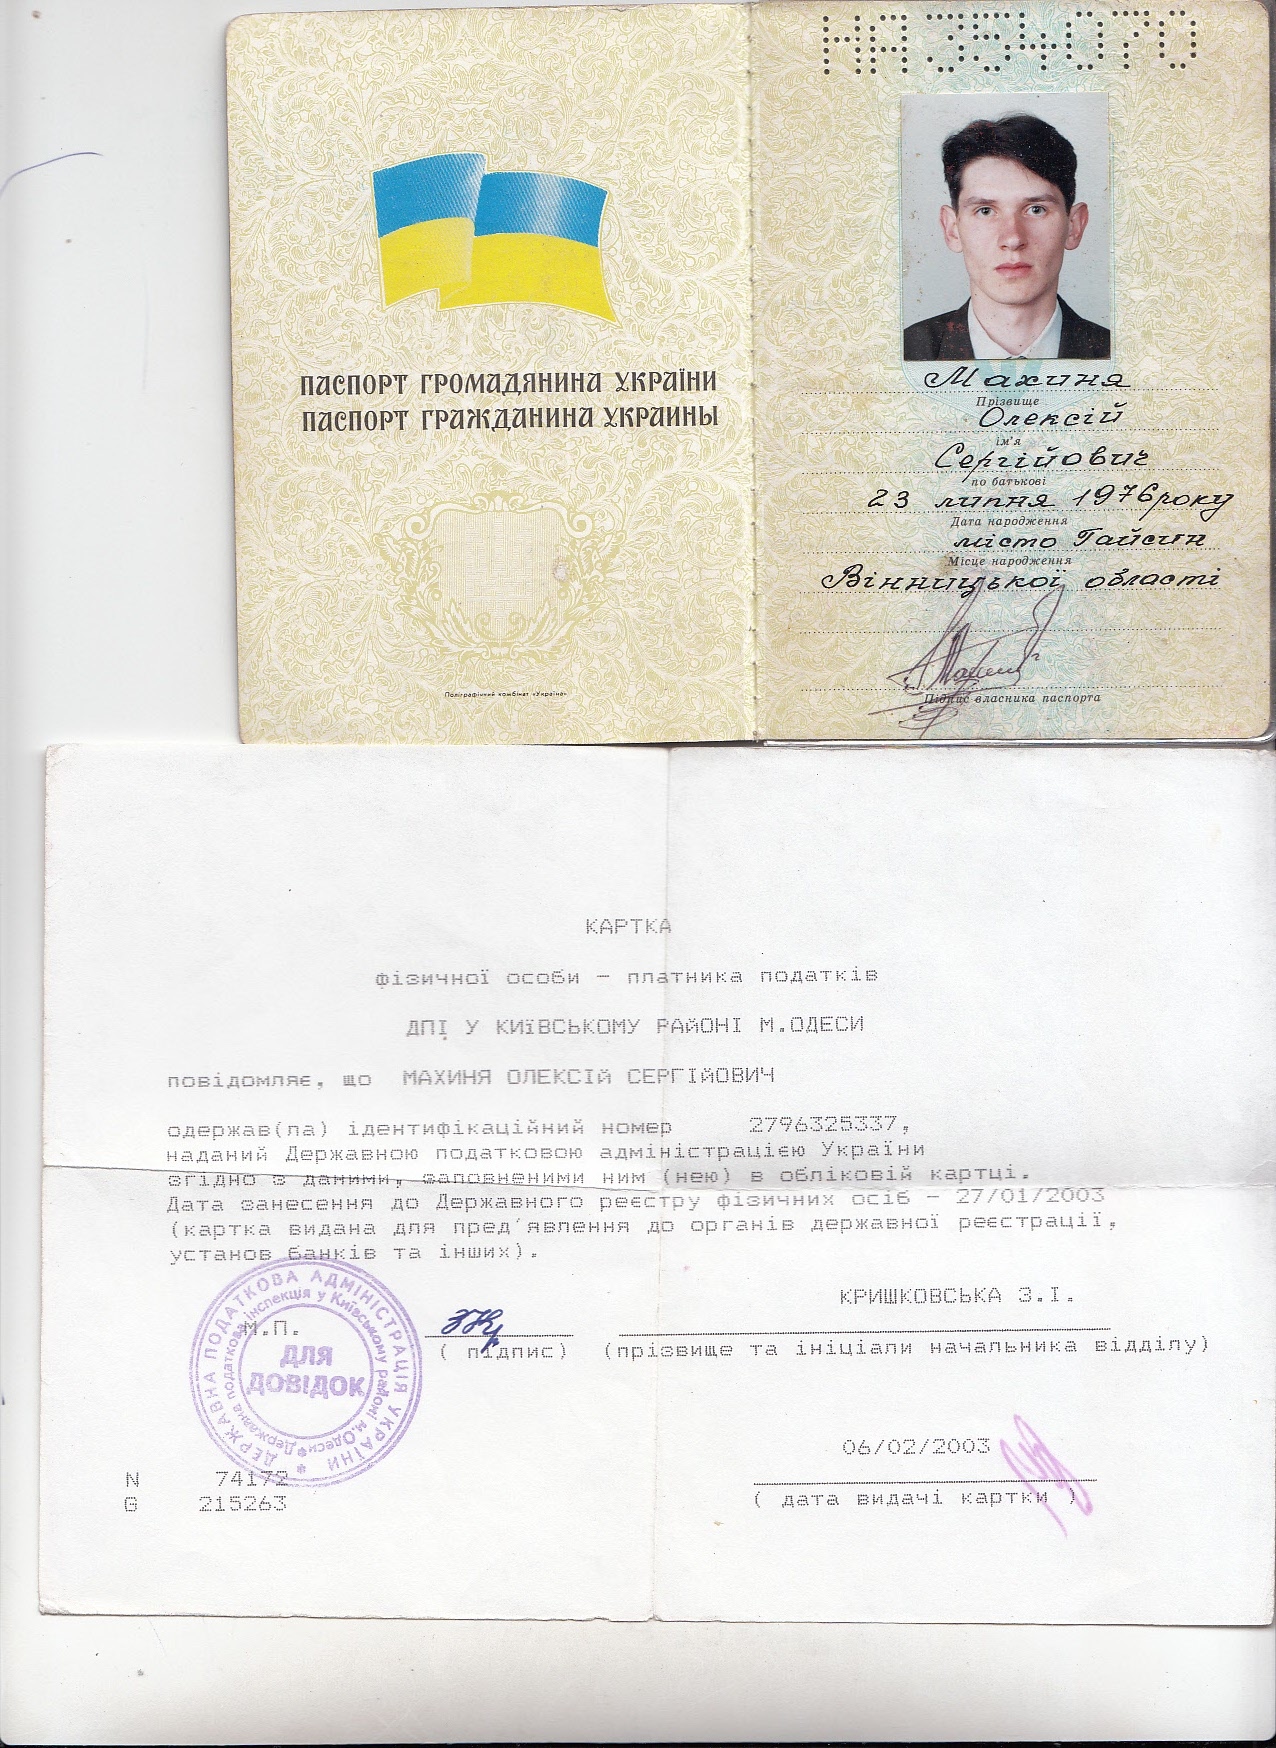 НА354070
ПАСПОРТ ГРОМАДЯНИНА УКРАЇНИ
ПАСПОРТ ГРАЖДАНИНА УКРАИНЫ
Поліграфічний комбінат «Україна»
Махиня
Прізвище
Олексій
ім'я
Сергійович
по батькові
23 липня 1976 року
Дата народження
місто Гайсин
Місце народження
Вінницької області
Підпис власника паспорта
КАРТКА
фізичної особи – платника податків
ДПІ У КИЇВСЬКОМУ РАЙОНІ М.ОДЕСИ
повідомляє, що МАХИНЯ ОЛЕКСІЙ СЕРГІЙОВИЧ
одержав(ла) ідентифікаційний номер 2796325337,
наданий Державною податковою адміністрацією України
згідно з даними, заповненими ним (нею) в обліковій картці.
Дата занесення до Державного реєстру фізичних осіб – 27/01/2003
(картка видана для пред'явлення до органів державної реєстрації,
установ банків та інших).
КРИШКОВСЬКА З.І.
М.П.
( підпис) (прізвище та ініціали начальника відділу)
ДЕРЖАВНА ПОДАТКОВА АДМІНІСТРАЦІЯ УКРАЇНИ
Державна податкова інспекція у Київському районі м.Одеси
ДЛЯ
ДОВІДОК
06/02/2003
N 74172
G 215263
( дата видачі картки )